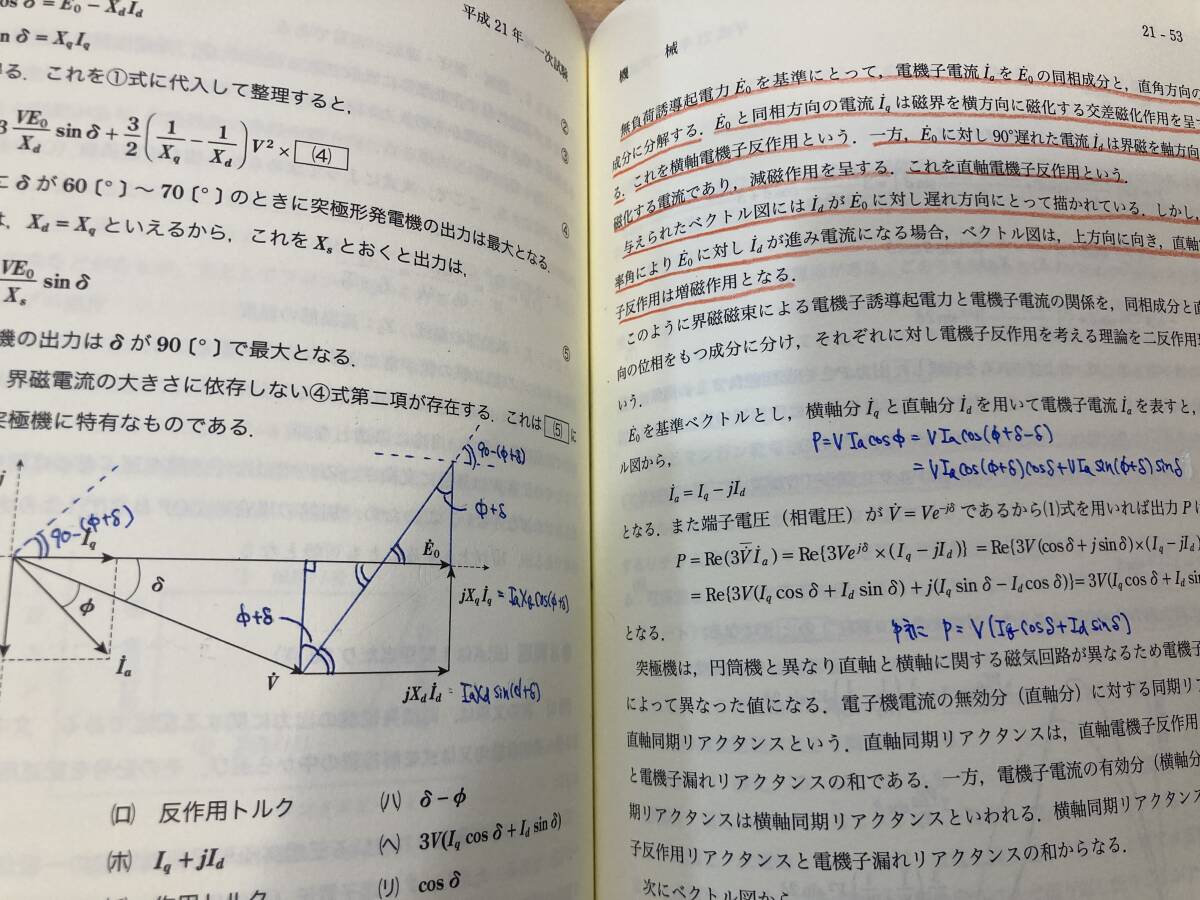 os δ = E₀ − X_d I_d
平成21年 一次試験
in δ = X_q I_q
る. これを①式に代入して整理すると,
②
3 VE₀/X_d sin δ + 3/2 (1/X_q − 1/X_d) V² × (4)
③
に δ が 60〔°〕〜70〔°〕のときに突極形発電機の出力は最大となる.
④
は, X_d = X_q といえるから, これを X_s とおくと出力は,
VE₀/X_s sin δ
⑤
機の出力は δ が 90〔°〕で最大となる.
界磁電流の大きさに依存しない④式第二項が存在する. これは (5) に
突極機に特有なものである.
90-(φ+δ)
φ+δ
90-(φ+δ)
İ_q
Ė₀
δ
φ
φ+δ
jX_q İ_q = IaXq cos(φ+δ)
İ_a
V̇
jX_d İ_d = IaXd sin(φ+δ)
(ロ) 反作用トルク
(ハ) δ − φ
(ホ) I_q + jI_d
(ヘ) 3V(I_q cos δ + I_d sin δ)
(リ) cos δ
機 械
21 - 53
無負荷誘導起電力 Ė₀ を基準にとって, 電機子電流 İ_a を Ė₀ の同相成分と, 直角方向の
成分に分解する. Ė₀ と同相方向の電流 İ_q は磁界を横方向に磁化する交差磁化作用を呈す
る. これを横軸電機子反作用という. 一方, Ė₀ に対し 90°遅れた電流 İ_d は界磁を軸方向
磁化する電流であり, 減磁作用を呈する. これを直軸電機子反作用という.
与えられたベクトル図には İ_d が Ė₀ に対し遅れ方向にとって描かれている. しかし,
率角により Ė₀ に対し İ_d が進み電流になる場合, ベクトル図は, 上方向に向き, 直軸
子反作用は増磁作用となる.
このように界磁磁束による電機子誘導起電力と電機子電流の関係を, 同相成分と直
向の位相をもつ成分に分け, それぞれに対し電機子反作用を考える理論を二反作用
いう.
Ė₀ を基準ベクトルとし, 横軸分 İ_q と直軸分 İ_d を用いて電機子電流 İ_a を表すと,
P = V Ia cos φ = V Ia cos(φ+δ-δ)
ル図から,
= V Ia cos(φ+δ) cos δ + V Ia sin(φ+δ) sin δ
İ_a = I_q − jI_d
となる. また端子電圧 (相電圧) が V̇ = Ve^−jδ であるから(1)式を用いれば出力 P は
P = Re(3V̄ İ_a) = Re{3Ve^jδ × (I_q − jI_d)} = Re{3V(cos δ + j sin δ)×(I_q − jI_d)
= Re{3V(I_q cos δ + I_d sin δ) + j(I_q sin δ − I_d cos δ)} = 3V(I_q cos δ + I_d sin
となる.
P = V(Iq cos δ + Id sin δ)
突極機は, 円筒機と異なり直軸と横軸に関する磁気回路が異なるため電機子
によって異なった値になる. 電子機電流の無効分 (直軸分) に対する同期リア
直軸同期リアクタンスという. 直軸同期リアクタンスは, 直軸電機子反作用
と電機子漏れリアクタンスの和である. 一方, 電機子電流の有効分 (横軸分
期リアクタンスは横軸同期リアクタンスといわれる. 横軸同期リアクタンス
子反作用リアクタンスと電機子漏れリアクタンスの和からなる.
次にベクトル図から